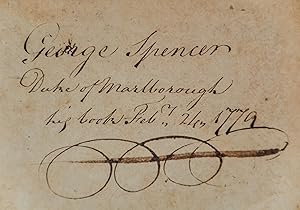 George Spencer
Duke of Marlborough
his book Feb.ʸ 21, 1779